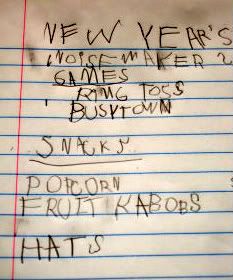 NEW YEAR'S
NOISEMAKER
GAMES
RING TOSS
BUSYTOWN
SNACKS
POPCORN
FRUIT KABOBS
HATS